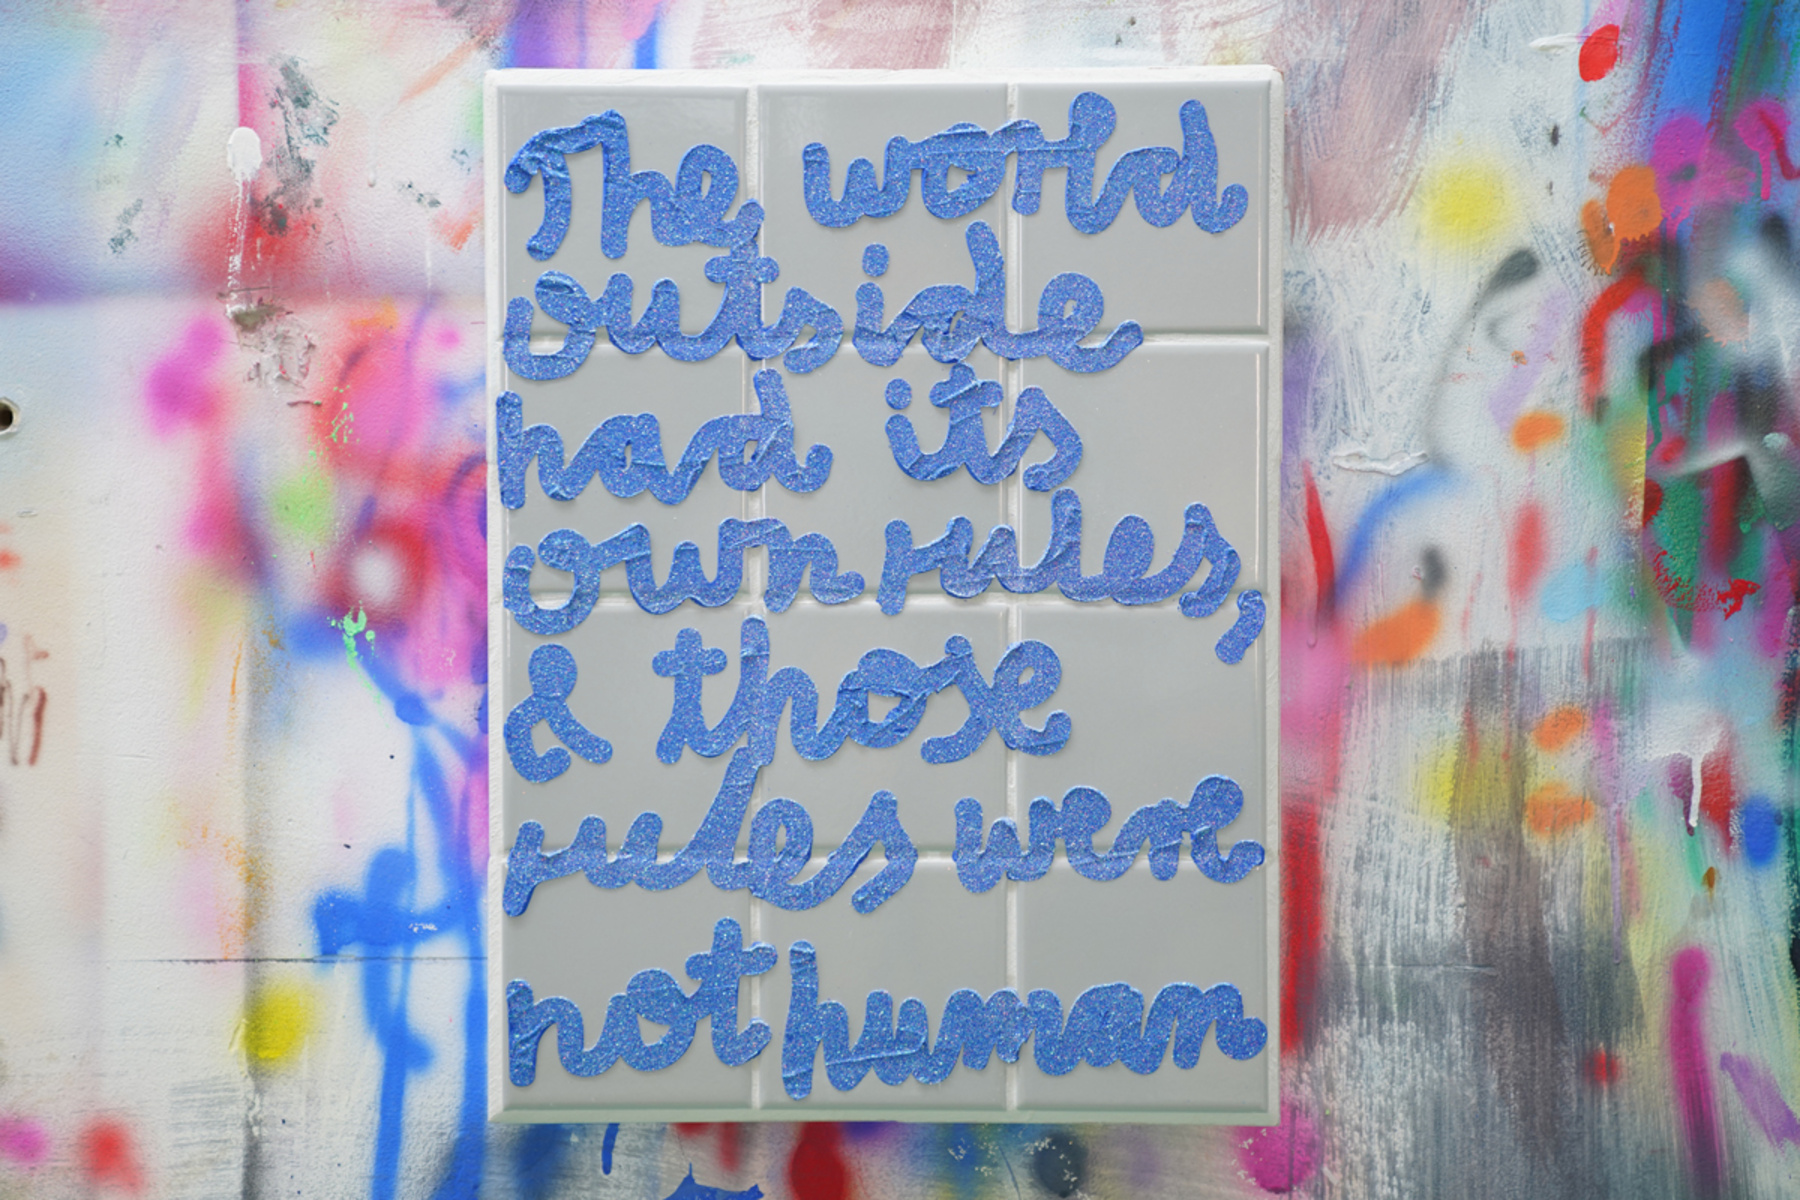 The world
outside
had its
own rules,
& those
rules were
not human